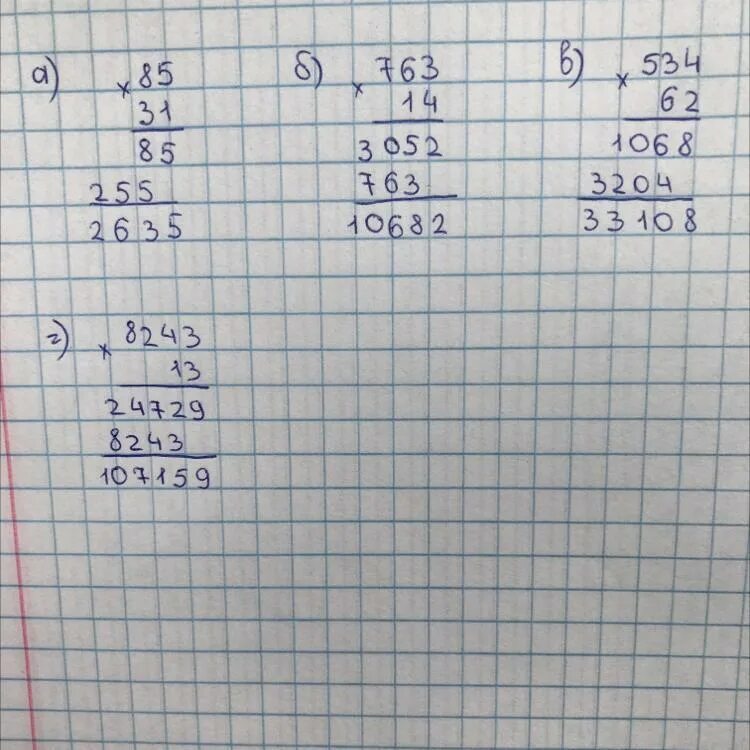 а) × 85
31
85
255
2635
б) × 763
14
3052
763
10682
в) × 534
62
1068
3204
33108
г) × 8243
13
24729
8243
107159